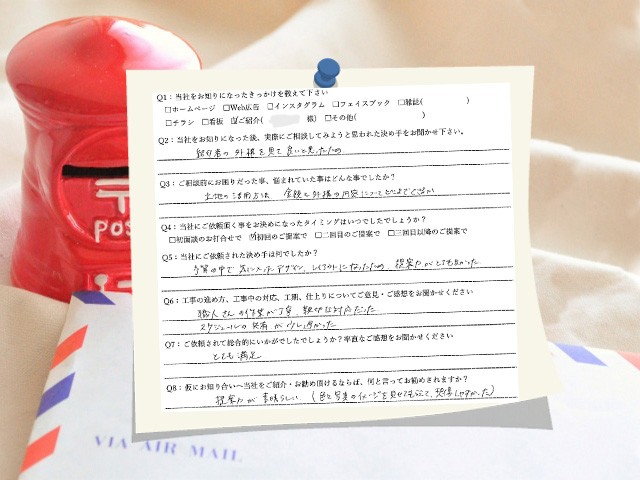 Q1：当社をお知りになったきっかけを教えて下さい
□ホームページ □Web広告 □インスタグラム □フェイスブック □雑誌( )
□チラシ □看板 ☑ご紹介( 様) □その他( )
Q2：当社をお知りになった後、実際にご相談してみようと思われた決め手をお聞かせ下さい。
紹介者の外構を見て良いと思ったため
Q3：ご相談前にお困りだった事、悩まれていた事はどんな事でしたか？
土地の活用方法 金額と外構の内容について
Q4：当社にご依頼頂く事をお決めになったタイミングはいつでしたでしょうか？
□初面談のお打合せで ☑初回のご提案で □二回目のご提案で □三回目以降のご提案で
Q5：当社にご依頼された決め手は何でしたか？
予算の中で デザイン、 になったため、提案力がとても良かった
Q6：工事の進め方、工事中の対応、工期、仕上りについてご意見・ご感想をお聞かせください
職人さんの作業が丁寧、親切な対応だった
スケジュールの共有がうれしかった
Q7：ご依頼されて総合的にいかがでしたでしょうか？率直なご感想をお聞かせください
とても満足
Q8：仮にお知り合いへ当社をご紹介・お勧め頂けるならば、何と言ってお勧めされますか？
提案力が素晴らしい (色と写真のイメージを見せてもらえて、想像しやすかった)
POS
VIA AIR MAIL